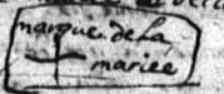 marque de la
mariee